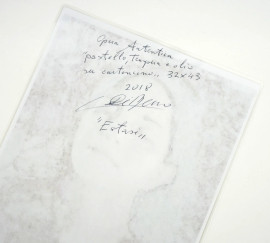 Opera Autentica
pastello, tempera e olio
su cartoncino 32x43
2018
"Estasi"